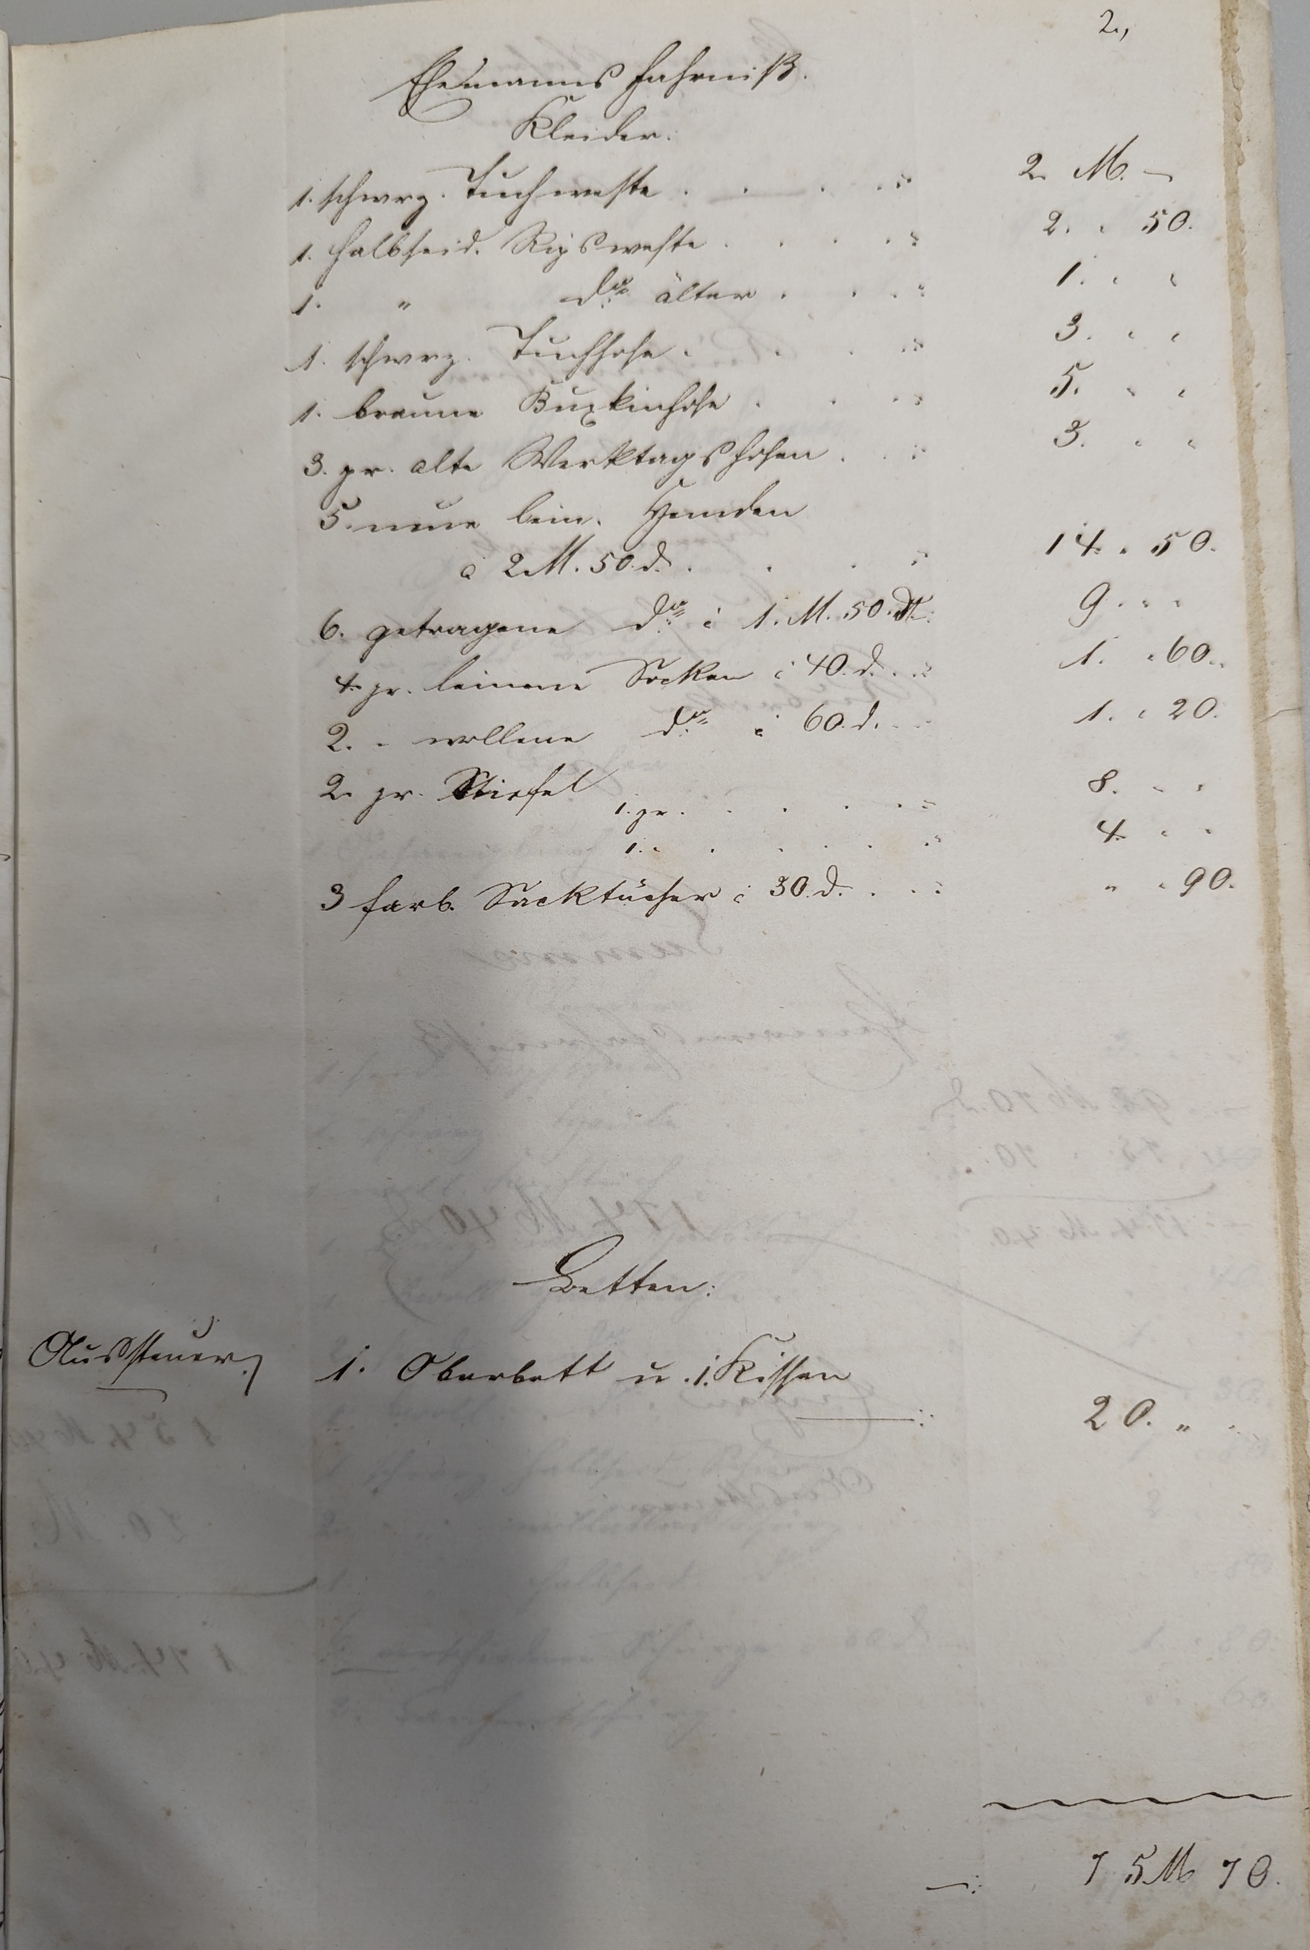 2.,
Ehemanns Fahrniß.
Kleider.
1. schwrz. Tuchweste . . . . -: 2. M. –
1. halbseid. Ripsweste . . . . -: 2. . 50.
1. " do. älter . . . -: 1. . .
1. schwrz. Tuchhose . . . -: 3. . .
1. braune Buxkinhose . . -: 5. . .
3. pr. alte Werktagshosen . . -: 3. . .
5. neue lein. Hemden
à 2 M. 50. d. . . . -: 14. . 50.
6. getragene do. à 1. M. 50. d. -: 9. . .
4. pr. leinene Socken à 40. d. . -: 1. . 60.
2. " wollene do. à 60. d. . -: 1. . 20.
2. pr. Stiefel
1. pr. . . . . -: 8. . .
1. " . . . . -: 4. . .
3 farb. Sacktücher à 30. d. . . -: " . 90.
Betten:
Aussteuer.
1. Oberbett u. 1. Kissen
-: 20. " .
-: 75 M 70.